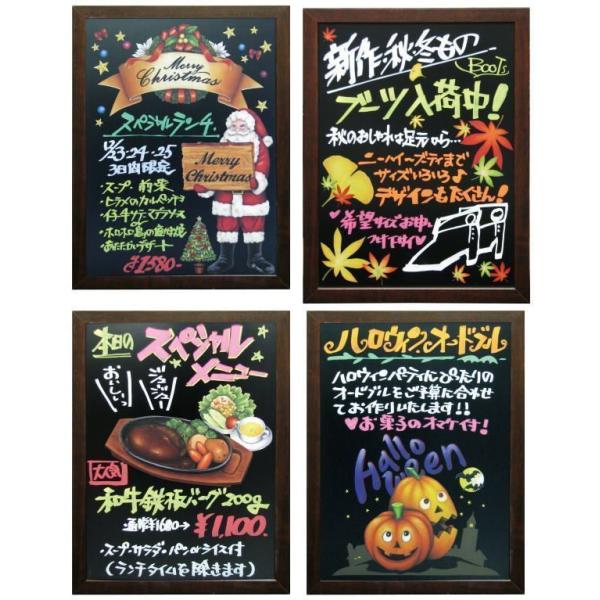 Merry
Christmas
スペシャルランチ
12/23・24・25
3日間限定
Merry
Christmas
・スープ 前菜
・ヒラメのカルパッチョ
・あたたかいデザート
¥1580-
新作、秋・冬もの
Boots
ブーツ入荷中!
秋のおしゃれは足元から…
ニーハイ〜ブーティまで
サイズいろいろ♪
デザインもたくさん!
♥希望サイズお申し
つけ下サイ♥
本日の
スペシャル
メニュー
おいしいっ
ジュージュー
大人気
和牛鉄板バーグ200g
通常¥1680→¥1,100.
・スープ・サラダ・パンorライス付
(ランチタイムを除きます)
ハロウィンオードブル
ハロウィンパーティにぴったりの
オードブルをご予算に合わせ
てお作りいたします!!
♥お菓子のオマケ付!
Hallo
ween